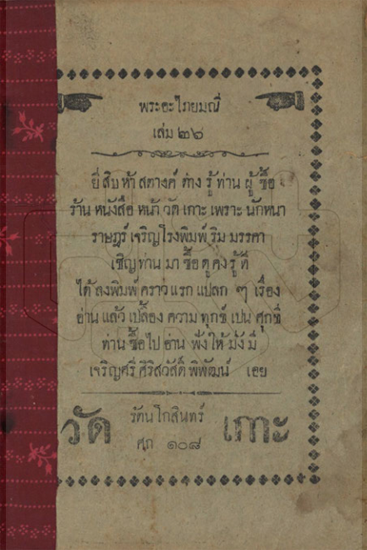 พระอะไภยมณี
เล่ม ๒๖
ยี่ สิบ ห้า สตางค์ ต่าง รู้ ท่าน ผู้ ซื้อ
ร้าน หนังสือ หน้า วัด เกาะ เพราะ นักหนา
ราษฎร์ เจริญ โรงพิมพ์ ริม มรรคา
เชิญ ท่าน มา ซื้อ ดู คง รู้ ดี
ได้ ลงพิมพ์ คราว แรก แปลก ๆ เรื่อง
อ่าน แล้ว เปลื้อง ความ ทุกข์ เปน ศุกขี
ท่าน ซื้อ ไป อ่าน ฟัง ให้ มั่ง มี
เจริญศรี ศิริสวัสดิ์ พิพัฒน์ เอย
วัด รัตนโกสินทร์ เกาะ
ศก ๑๐๘